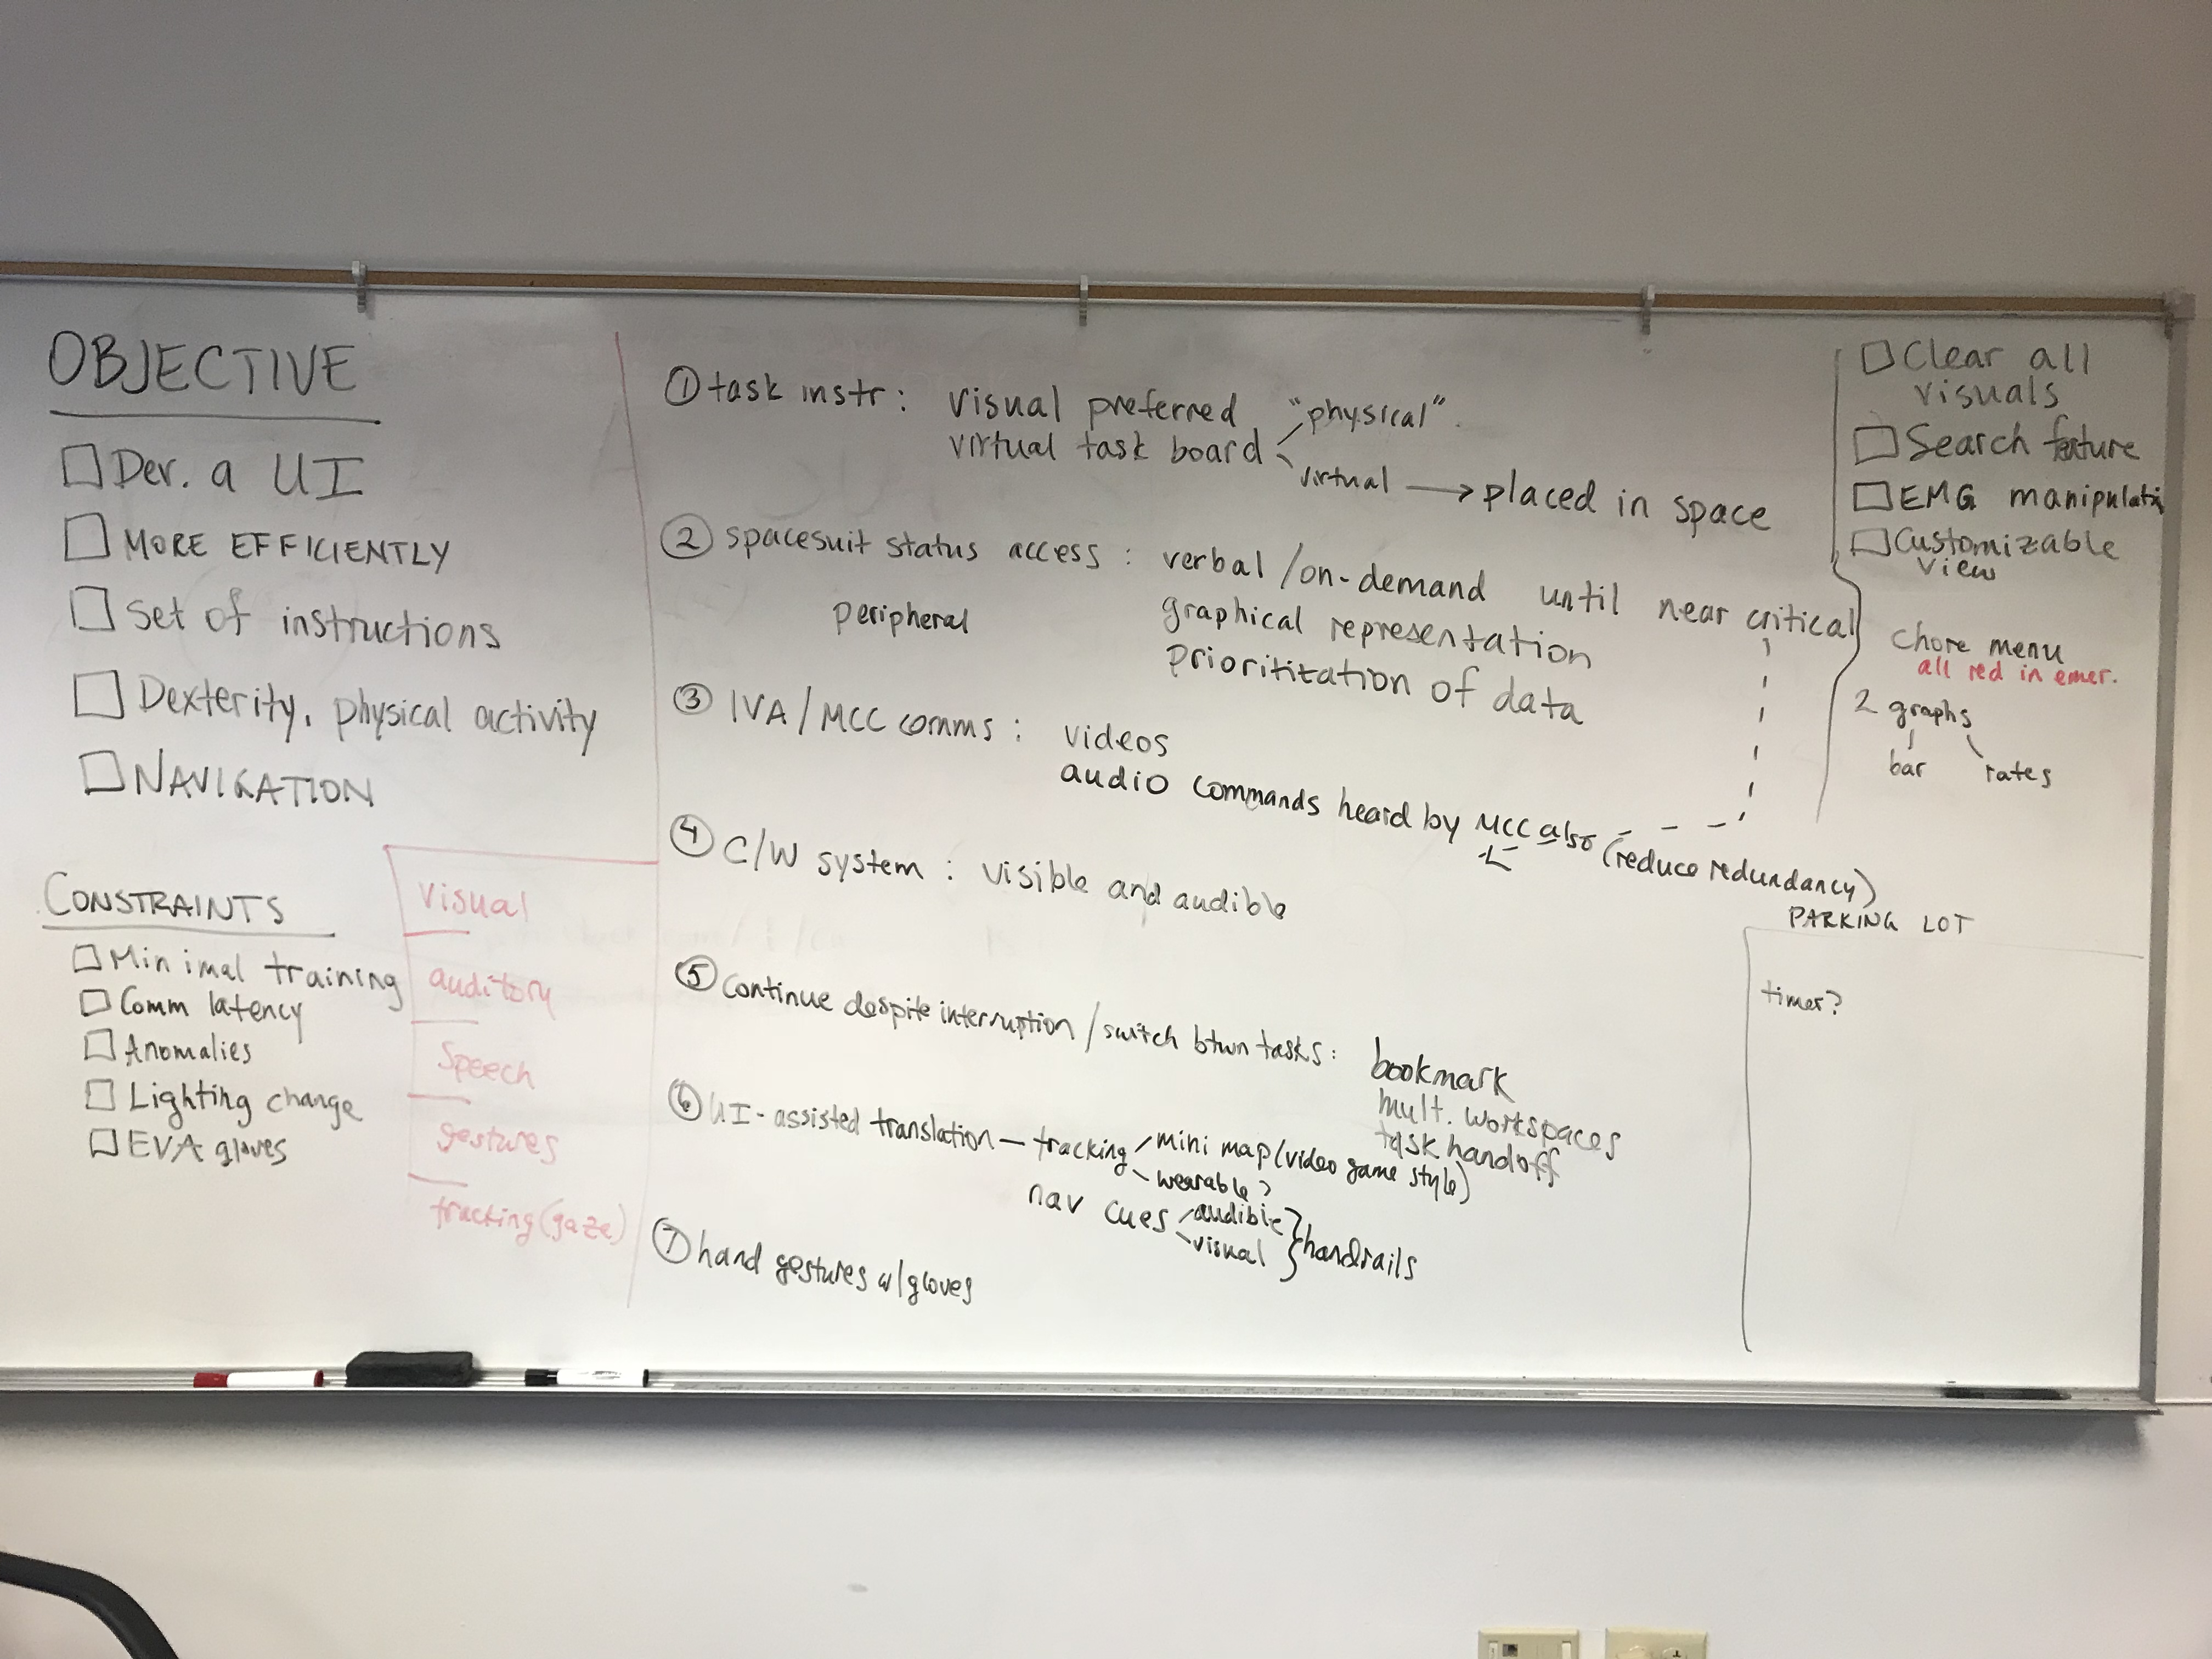 OBJECTIVE
Dev. a UI
MORE EFFICIENTLY
Set of instructions
Dexterity, physical activity
NAVIGATION
CONSTRAINTS
Minimal training
Comm latency
Anomalies
Lighting change
EVA gloves
visual
auditory
Speech
gestures
tracking (gaze)
① task instr: visual preferred
virtual task board
"physical"
virtual → placed in space
② spacesuit status access: verbal/on-demand until near critical
peripheral
graphical representation
prioritization of data
③ IVA/MCC comms: videos
audio commands heard by MCC also (reduce redundancy)
④ C/W system: visible and audible
⑤ Continue despite interruption/switch btwn tasks: bookmark
mult. workspaces
task handoff
⑥ UI-assisted translation — tracking
mini map (video game style)
wearable?
nav cues
audible
visual
handrails
⑦ hand gestures w/gloves
Clear all
visuals
Search feature
EMG manipulati
Customizable
view
chore menu
all red in emer.
2 graphs
bar
rates
PARKING LOT
timer?